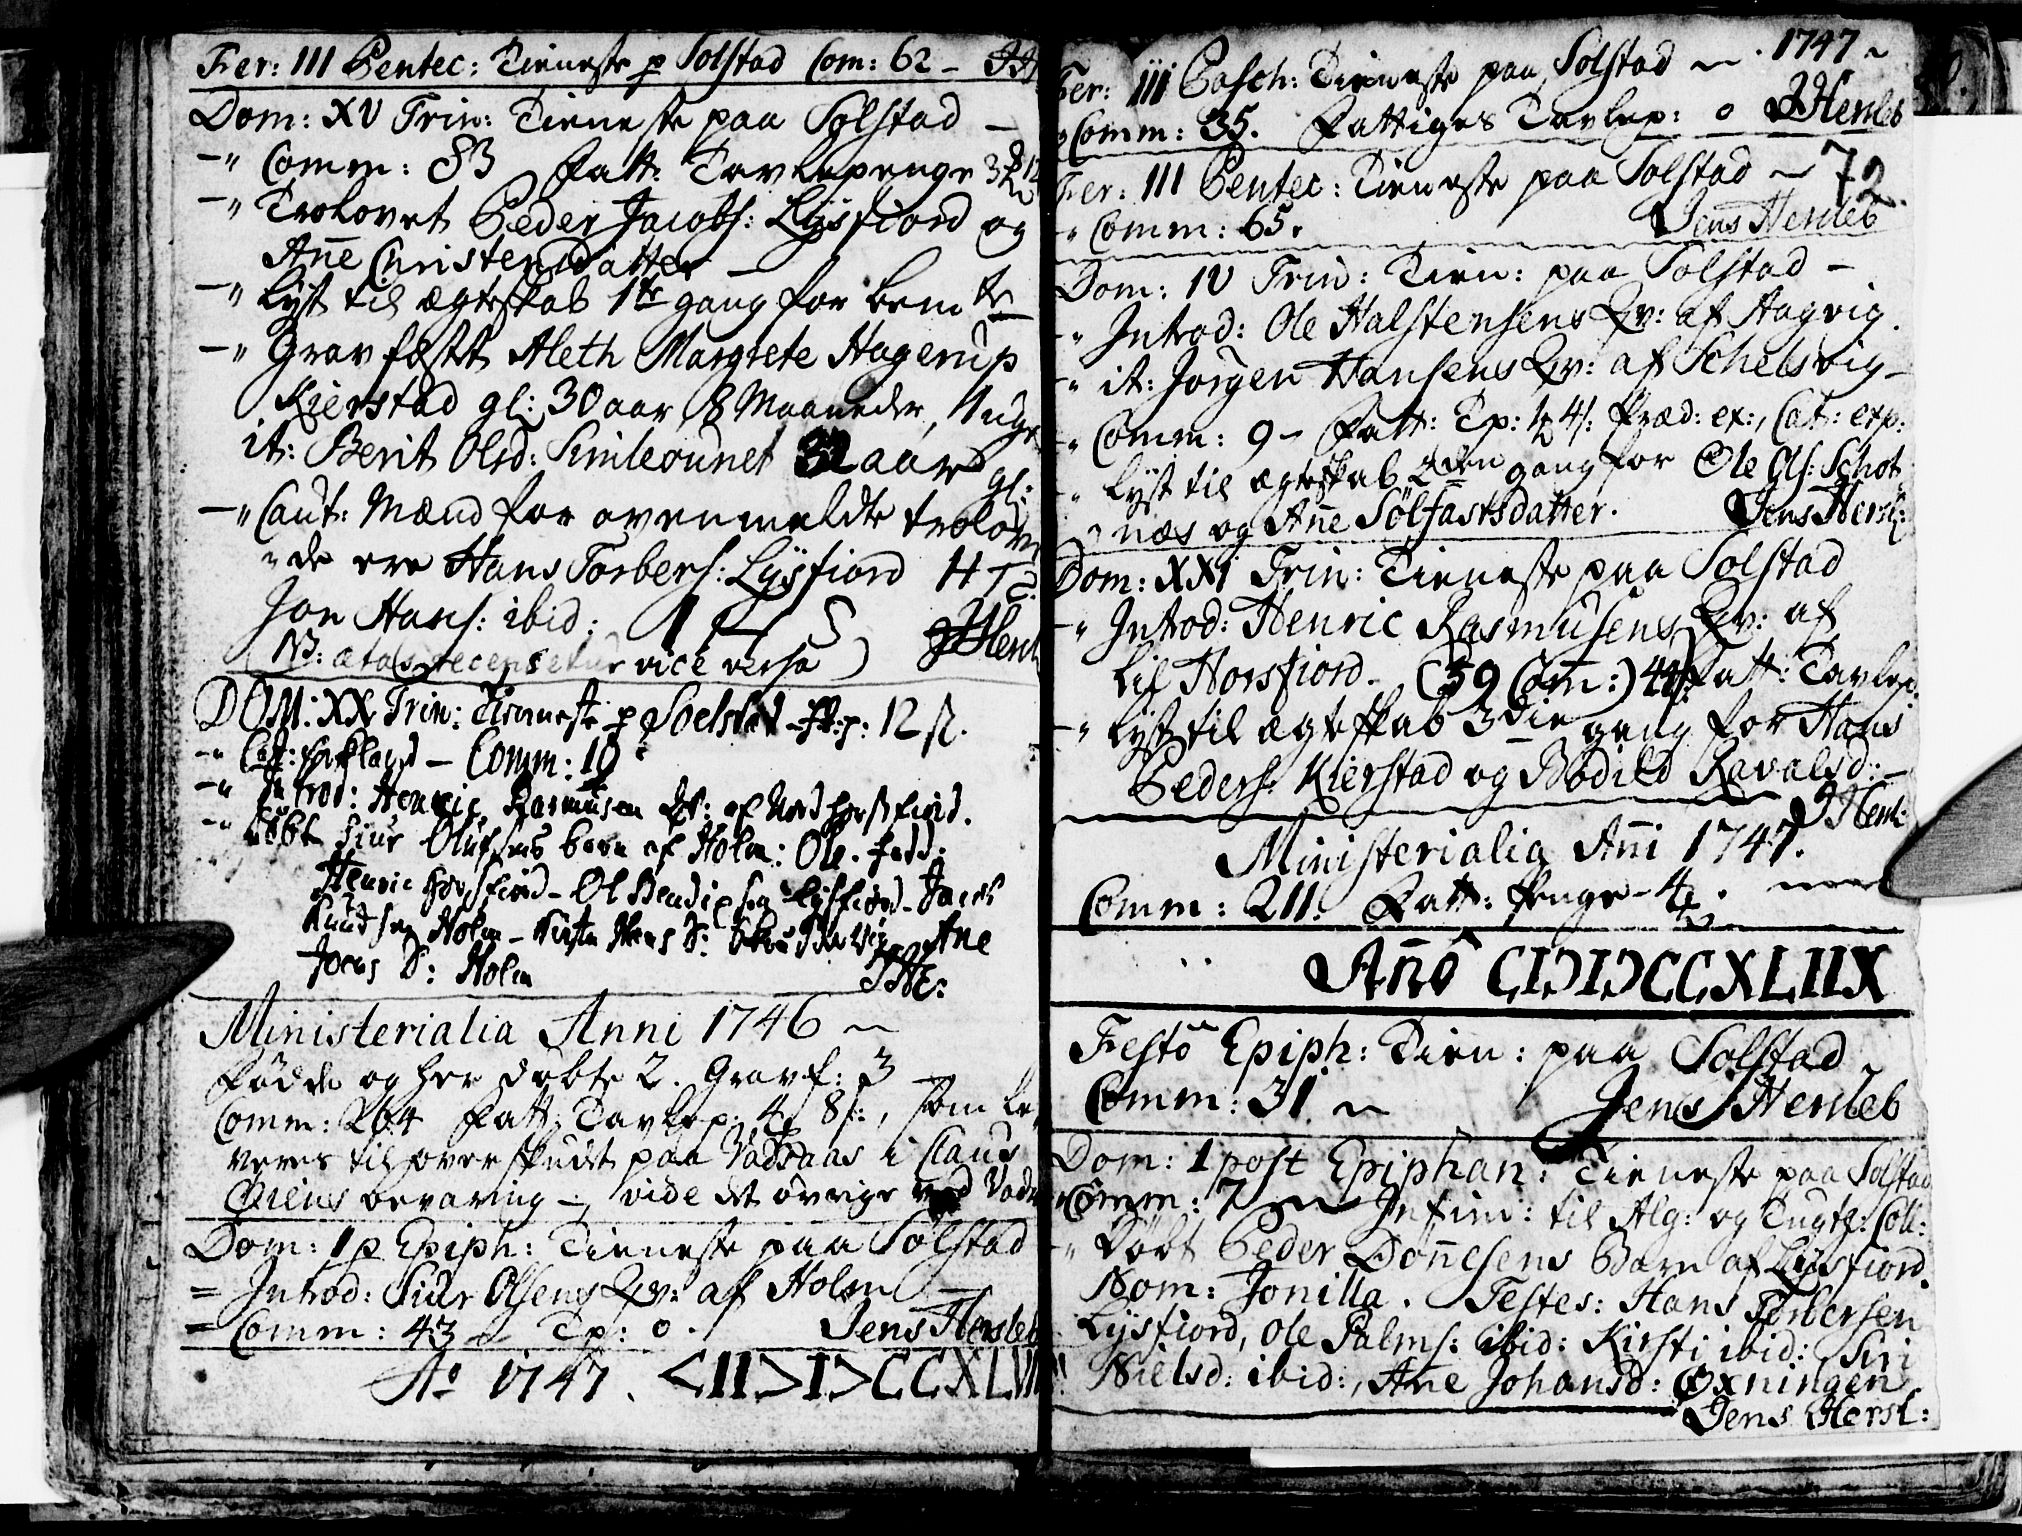 Fer: III Pentec: Tieneste p Solstad Com: 62 –
Dom: XV Trin: Tieneste paa Solstad –
–" Comm: 83 Fatt: Tavlepenge
–" Trolovet Peder Jacobs: Lysfiord og
Añe Christensdatter –
–" Lyst til ægteskab 1te gang for bemte
–" Gravfæstt Aleth Margrete Hagerup
Kierstad gl: 30 aar 8 Maaneder,
it: Berit Olsd: 32 aar gl:
–" Caut: Mænd for ovenmeldte trolov
"de ere Hans Torbers: Lysfiord
Jon Hans: ibid:
(NB: ætas recensetur vice versa)
DOM: XX Trin: Tieneste p Soelstad 12 ß.
–" Cat: forklaret – Comm: 10
–" Introd: Henric Rasmusen Qv: af Nordhorsfiord.
–" Døbt Siur Olufsens barn af Holm: Ole. Fadd:
Henric Horsfiord – Ol Bendixsen Lysfiord – Jacob
Knudsen Holm – Ane
Joens D: Holm JH:
Ministerialia Anni 1746 ~
Fødde og her døbte 2. Gravf: 3 –
Comm: 264 Fatt: Tavlep: 4 8 ß:, som le
veres til overskudt paa Vadsaas i Claus
Oiens bevaring –, vide det øvrige ved Vads
Dom: 1 p Epiph: Tieneste paa Solstad
= Introd: Siur Olsens Qv: af Holm –
= Comm: 43 – Tp: 0. Jens Hersleb
Ao 1747.
Fer: III Pasch: Tieneste paa Solstad ~ 1747 ~
Comm: 35. Fattiges Tavlep: 0 JHersleb
Fer: III Pentec: Tieneste paa Solstad ~ 72
–" Comm: 65. Jens Hersleb
Dom: IV Trin: Tien: paa Solstad –
–" Introd: Ole Halstensens Qv: af Hagvig.
–" it: Jørgen Hansens Qv: af Schelsvig –
–" Comm: 9 – Fatt: Tp: 4 ß: Præd: ex:, Cat: exp:
–" Lyst til ægteskab 2den gang for Ole Ols: Schot
næs og Añe Sølfastsdatter. Jens Hersl:
Dom: XXI Trin: Tieneste paa Solstad
–" Introd: Henric Rasmusens Qv: af
lil Horsfiord. (39 Com̃:) Fatt: Tavlep:
–" Lyst til ægteskab 3die gang for Hans
Peders: Kierstad og Bodild Ravalsd: –
JHersl:
Ministerialia Añi 1747.
Comm: 211. Fatt: Penge – 4
Añô CIƆIƆCCXLIIX
Festô Epiph: Tien: paa Solstad
Comm: 31 ~ Jens Hersleb
Dom: 1 post Epiphan: Tieneste paa Solstad
Comm: 7 ~ Infim: til Alg: og Tugtz: Coll:
–" Døbt Peder Doñesens Barn af Lysfiord.
Nom: Jonilla. Testes: Hans Torbersen
Lysfiord, Ole Palms: ibid: Kirsti ibid: Siri
Nielsd: ibid:, Ane Johansd: Øxningen
Jens Hersl: